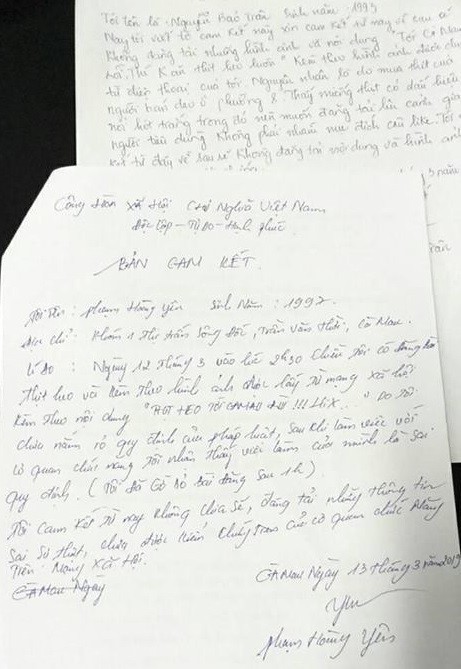 Tôi tên là: Nguyễn Bảo Trân sinh năm: 1993
Nay tôi viết tờ cam kết này xin cam kết từ nay về sau sẽ
không đăng tải những hình ảnh và nội dung "Tới Cà Mau
rồi. Thì K ăn thịt heo luôn" kèm theo hình ảnh
từ điện thoại của tôi. Nguyên nhân là do mua thịt của
người bán dạo ở phường 8. Thấy miếng thịt có dấu hiệu
nổi hột trắng trong đó nên muốn đăng tải lên cảnh giác
người tiêu dùng không phải nhằm mục đích câu like. Tôi
kết từ đây về sau sẽ không đăng tải nội dung và hình ảnh
Cộng Hòa Xã Hội Chủ Nghĩa Việt Nam
Độc Lập - Tự Do - Hạnh phúc
BẢN CAM KẾT
Tôi Tên: Phạm Hồng Yến Sinh Năm: 1997
Địa chỉ: Khóm 1 Thị trấn Sông Đốc, Trần Văn Thời, Cà Mau.
Lí do: Ngày 12 tháng 3 vào lúc 2h30 chiều tôi có đăng bài
thịt heo và kèm theo hình ảnh được lấy từ mạng xã hội
kèm theo nội dung " TỚI CÀ MAU RỒI !!! HIX..." Do tôi
chưa nắm rõ quy định của pháp luật, sau khi làm việc với
cơ quan chức năng tôi nhận thấy việc làm của mình là sai
quy định. (Tôi đã gỡ bỏ bài đăng sau 1h)
Tôi cam kết từ nay không chia sẻ, đăng tải những thông tin
sai sự thật, chưa được kiểm chứng của cơ quan chức năng
trên mạng xã hội.
Cà Mau Ngày
Cà Mau Ngày 13 tháng 3 năm 2019
Yến
Phạm Hồng Yến